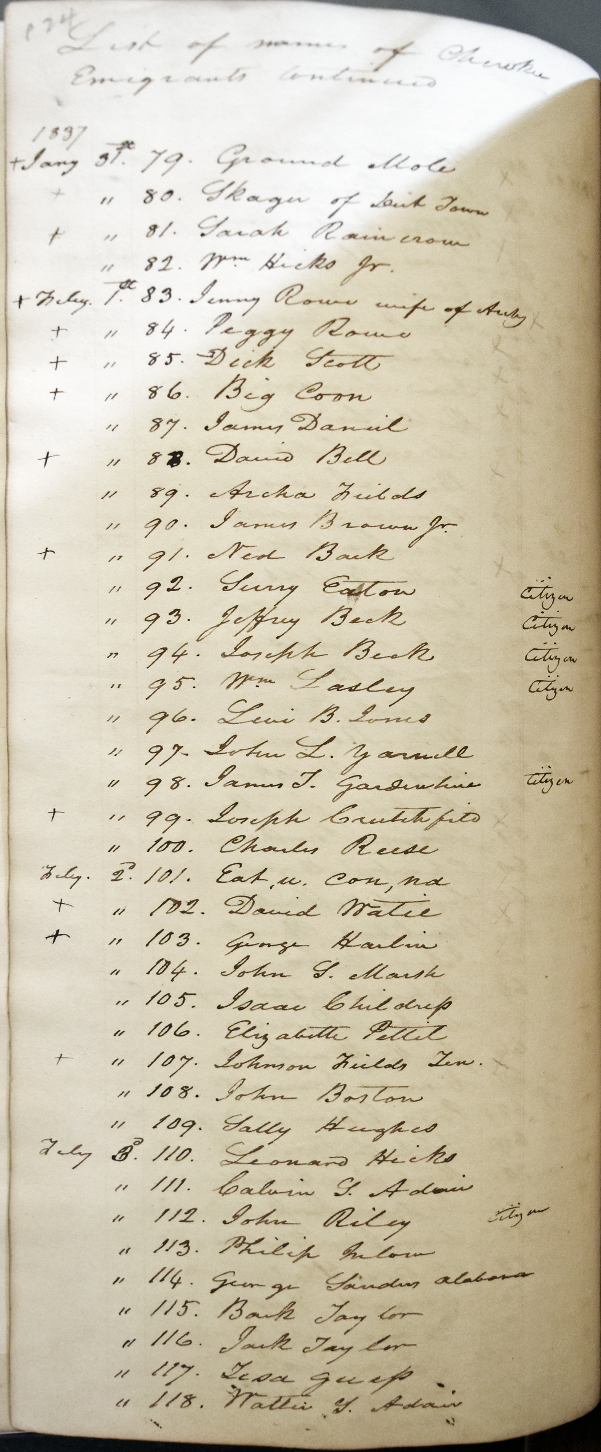 List of names of Cherokee
Emigrants Continued
1837
+ Jany 31st. 79. Ground Mole
+ " 80. Skager of Dirt Town
+ " 81. Sarah Rain crow
" 82. Wm Hicks Jr.
+ Feby. 1st. 83. Jenny Rowe wife of Archy
+ " 84. Peggy Rowe
+ " 85. Dick Scott
+ " 86. Big Coon
" 87. James Daniel
+ " 88. David Bell
" 89. Archa Fields
" 90. James Brown Jr.
+ " 91. Ned Bark
" 92. Surry Eaton Citizen
" 93. Jeffrey Beck Citizen
" 94. Joseph Beck Citizen
" 95. Wm Lasley Citizen
" 96. Levi B. Jones
" 97. John L. Yarnell
" 98. James T. Gardenhire Citizen
+ " 99. Joseph Crutchfield
" 100. Charles Reese
Feby. 2d. 101. Eat, u. con, na
+ " 102. David Watie
+ " 103. George Harlin
" 104. John S. Marsh
" 105. Isaac Childress
" 106. Elizabeth Pettit
+ " 107. Johnson Fields Ten.
" 108. John Boston
" 109. Sally Hughes
Feby 3d. 110. Leonard Hicks
" 111. Calvin S. Adair
" 112. John Riley Citizen
" 113. Philip Inlow
" 114. George Sanders alabama
" 115. Bark Taylor
" 116. Jack Taylor
" 117. Tesa Guess
" 118. Wattie S. Adair